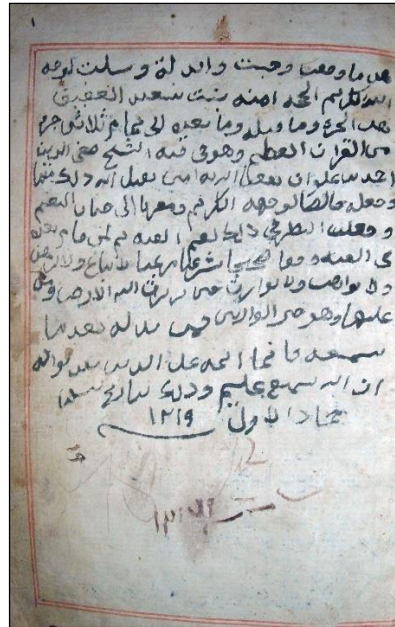 ١
هذا ما وقفت وحبست وابدلة وسبلت لوجه
الله الكريم الحجه امنه بنت سعيد العفيري
هذا الجزء وما قبله وما بعده الى تمام ثلاثين جزء
من القران العظيم وهو في قبة الشيخ صفي الدين
احمد بن علوان نفعنا الله به امين تقبل الله ذلك منها
وجعله خالصا لوجهه الكريم ومقربا الى جنات النعيم
وجعلت النظر في ذلك لقيم القبه ثم لمن قام بعده
في القبه وقفا صحيحا شرعيا مرعيا لا يباع ولا يرهن
ولا يوهب ولا يورث حتى يرث الله الارض ومن
عليها وهو خير الوارثين فمن بدله بعد ما
سمعه فانما اثمه على الذين يبدلونه
ان الله سميع عليم وذلك بتاريخ شهر
جماد الاول ١٢١٩